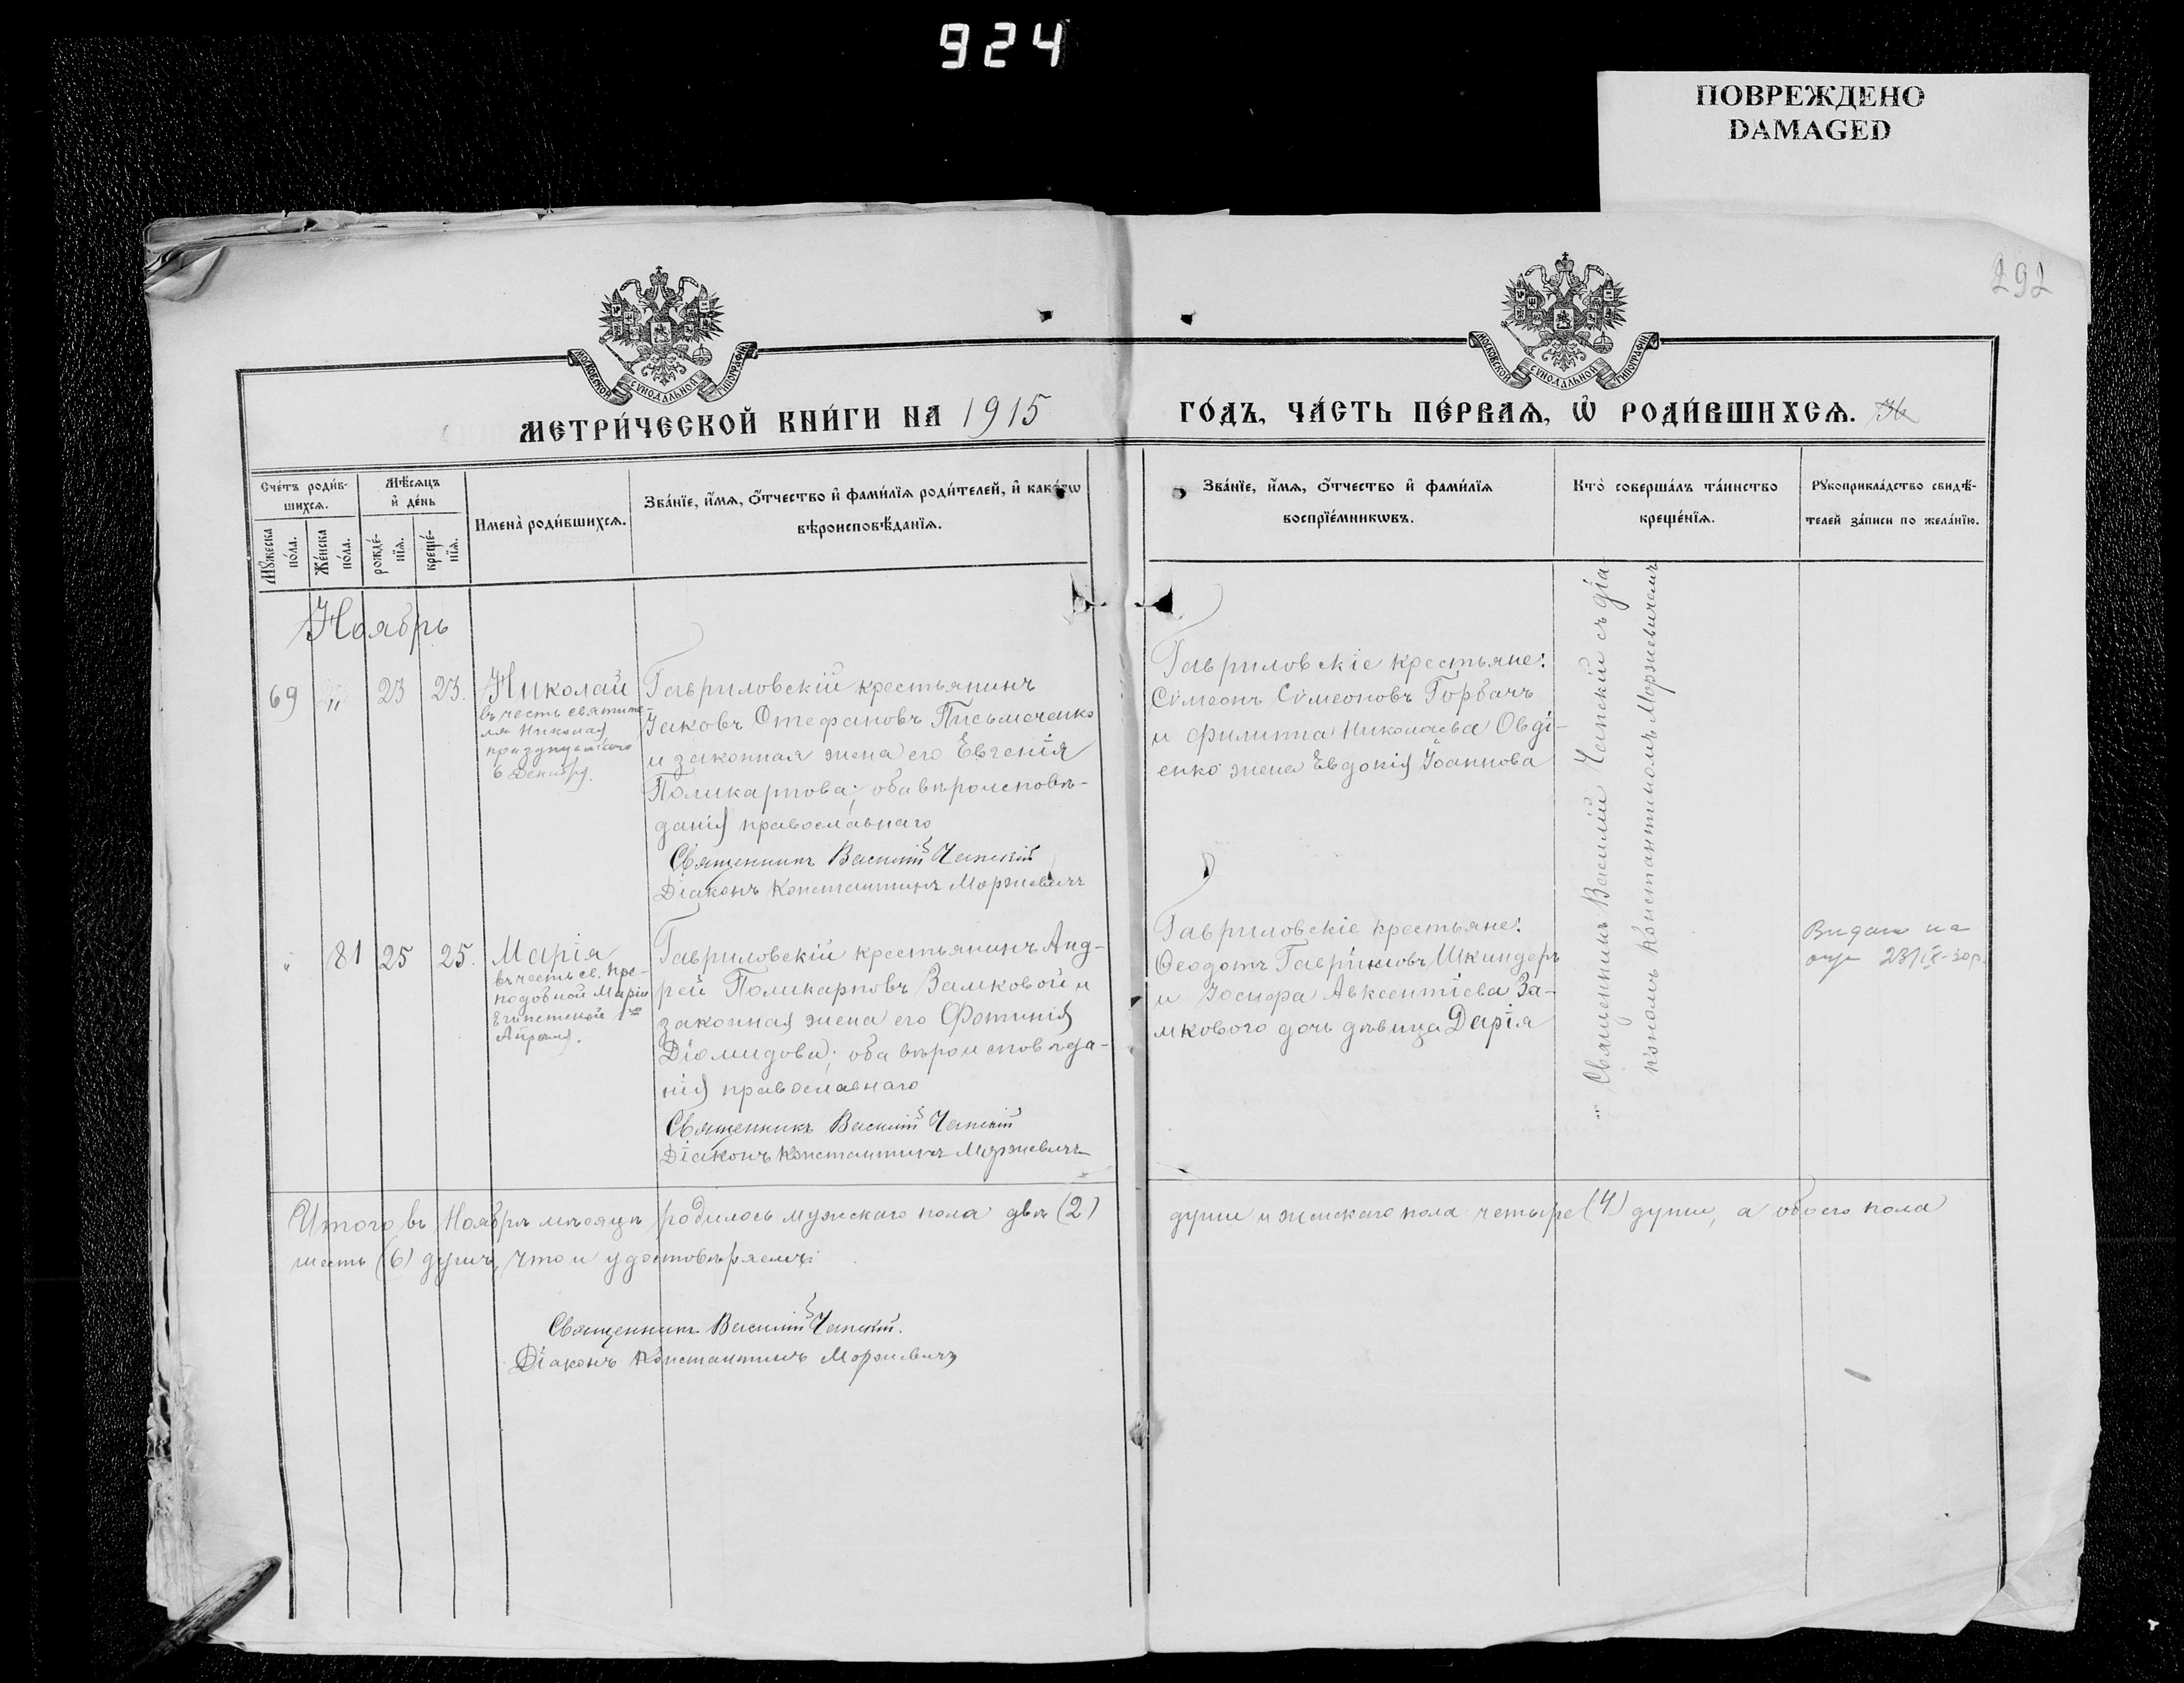 924
ПОВРЕЖДЕНО
DAMAGED
292
МОСКОВСКОЙ СѴНОДАЛЬНОЙ ТИПОГРАФІИ
МОСКОВСКОЙ СѴНОДАЛЬНОЙ ТИПОГРАФІИ
МЕТРИ́ЧЕСКОЙ КНИ́ГИ НА 1915
ГО́ДЪ, ЧА́СТЬ ПЕ́РВАѦ, Ѡ҆ РОДИ́ВШИХСѦ.
Сче́тъ роди́в-
шихсѧ.
Мꙋ́жеска
по́ла.
Же́нска
по́ла.
Мѣ́сѧцъ
и҆ де́нь
рожде́-
нїѧ.
креще́-
нїѧ.
Имена̀ роди́вшихсѧ.
Зва́нїе, и҆́мѧ, ѻ҆́тчество и҆ фами́лїѧ роди́телей, и҆ како́гѡ
вѣроисповѣ́данїѧ.
Зва́нїе, и҆́мѧ, ѻ҆́тчество и҆ фами́лїѧ
воспрїе́мникѡвъ.
Кто̀ соверша́лъ та́инство
креще́нїѧ.
Рꙋкоприкла́дство свидѣ́-
телей за́писи по жела́нїю.
Ноябрь
69 " 23 23.
Николай
въ честь святите-
ля Николая
празднуемаго
6 Декабря.
Гавриловскій крестьянинъ
Іаковъ Стефановъ Письмеченко
и законная жена его Евгенія
Поликарпова; оба вѣроисповѣ-
данія православнаго
Священникъ Василій Чапскій
Діаконъ Константинъ Моржевичъ
Гавриловскіе крестьяне:
Сѵмеонъ Сѵмеоновъ Горбачъ
и Филиппа Николаева Овді-
енко жена Евдокія Іоаннова
" 81 25 25.
Марія
въ честь св. Пре-
подобной Маріи
Египетской 1го
Апрѣля.
Гавриловскій крестьянинъ Анд-
рей Поликарповъ Замковой и
законная жена его Фотинія
Діомидова; оба вѣроисповѣда-
нія православнаго
Священникъ Василій Чапскій
Діаконъ Константинъ Моржевичъ
Гавриловскіе крестьяне:
Ѳеодотъ Гавріиловъ Шкиндеръ
и Іосифа Авксентіева За-
мкового дочь дѣвица Дарія
Священникъ Василій Чапскій съ діа
кономъ Константиномъ Моржевичемъ
Видано на
23/IX-30р.
Итого въ Ноябрѣ мѣсяцѣ родилось мужскаго пола двѣ (2)
души и женскаго пола четыре (4) души, а обоего пола
шесть (6) душъ, что и удостовѣряемъ:
Священникъ Василій Чапскій.
Діаконъ Константинъ Моржевичъ